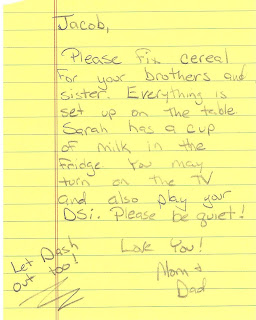 Jacob,
Please fix cereal
for your brothers and
sister. Everything is
set up on the table.
Sarah has a cup
of milk in the
fridge. You may
turn on the TV
and also play your
DSi. Please be quiet!
Love You!
Mom &
Dad
Let Dash
out too!